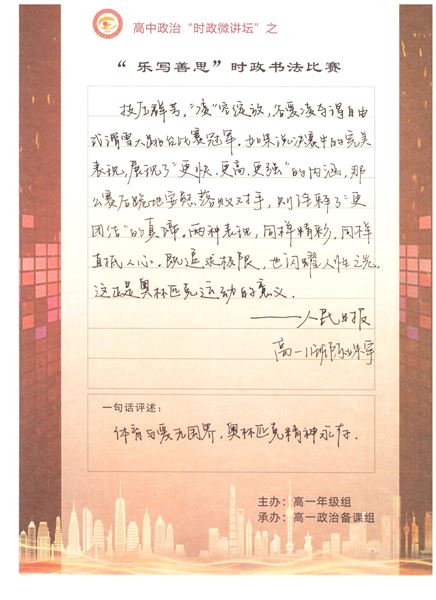 高中政治“时政微讲坛”之
“乐写善思”时政书法比赛
技压群芳，“凌”空绽放，谷爱凌夺得自由
式滑雪大跳台比赛冠军。如果说决赛中的完美
表现，展现了“更快、更高、更强”的内涵，那
么赛后跪地安慰落败对手，则诠释了“更
团结”的真谛，两种表现，同样精彩，同样
直抵人心。既追求极限，也闪耀人性之光，
这正是奥林匹克运动的意义。
——人民日报
高一
一句话评述：
体育与爱无国界，奥林匹克精神永存。
主办：高一年级组
承办：高一政治备课组